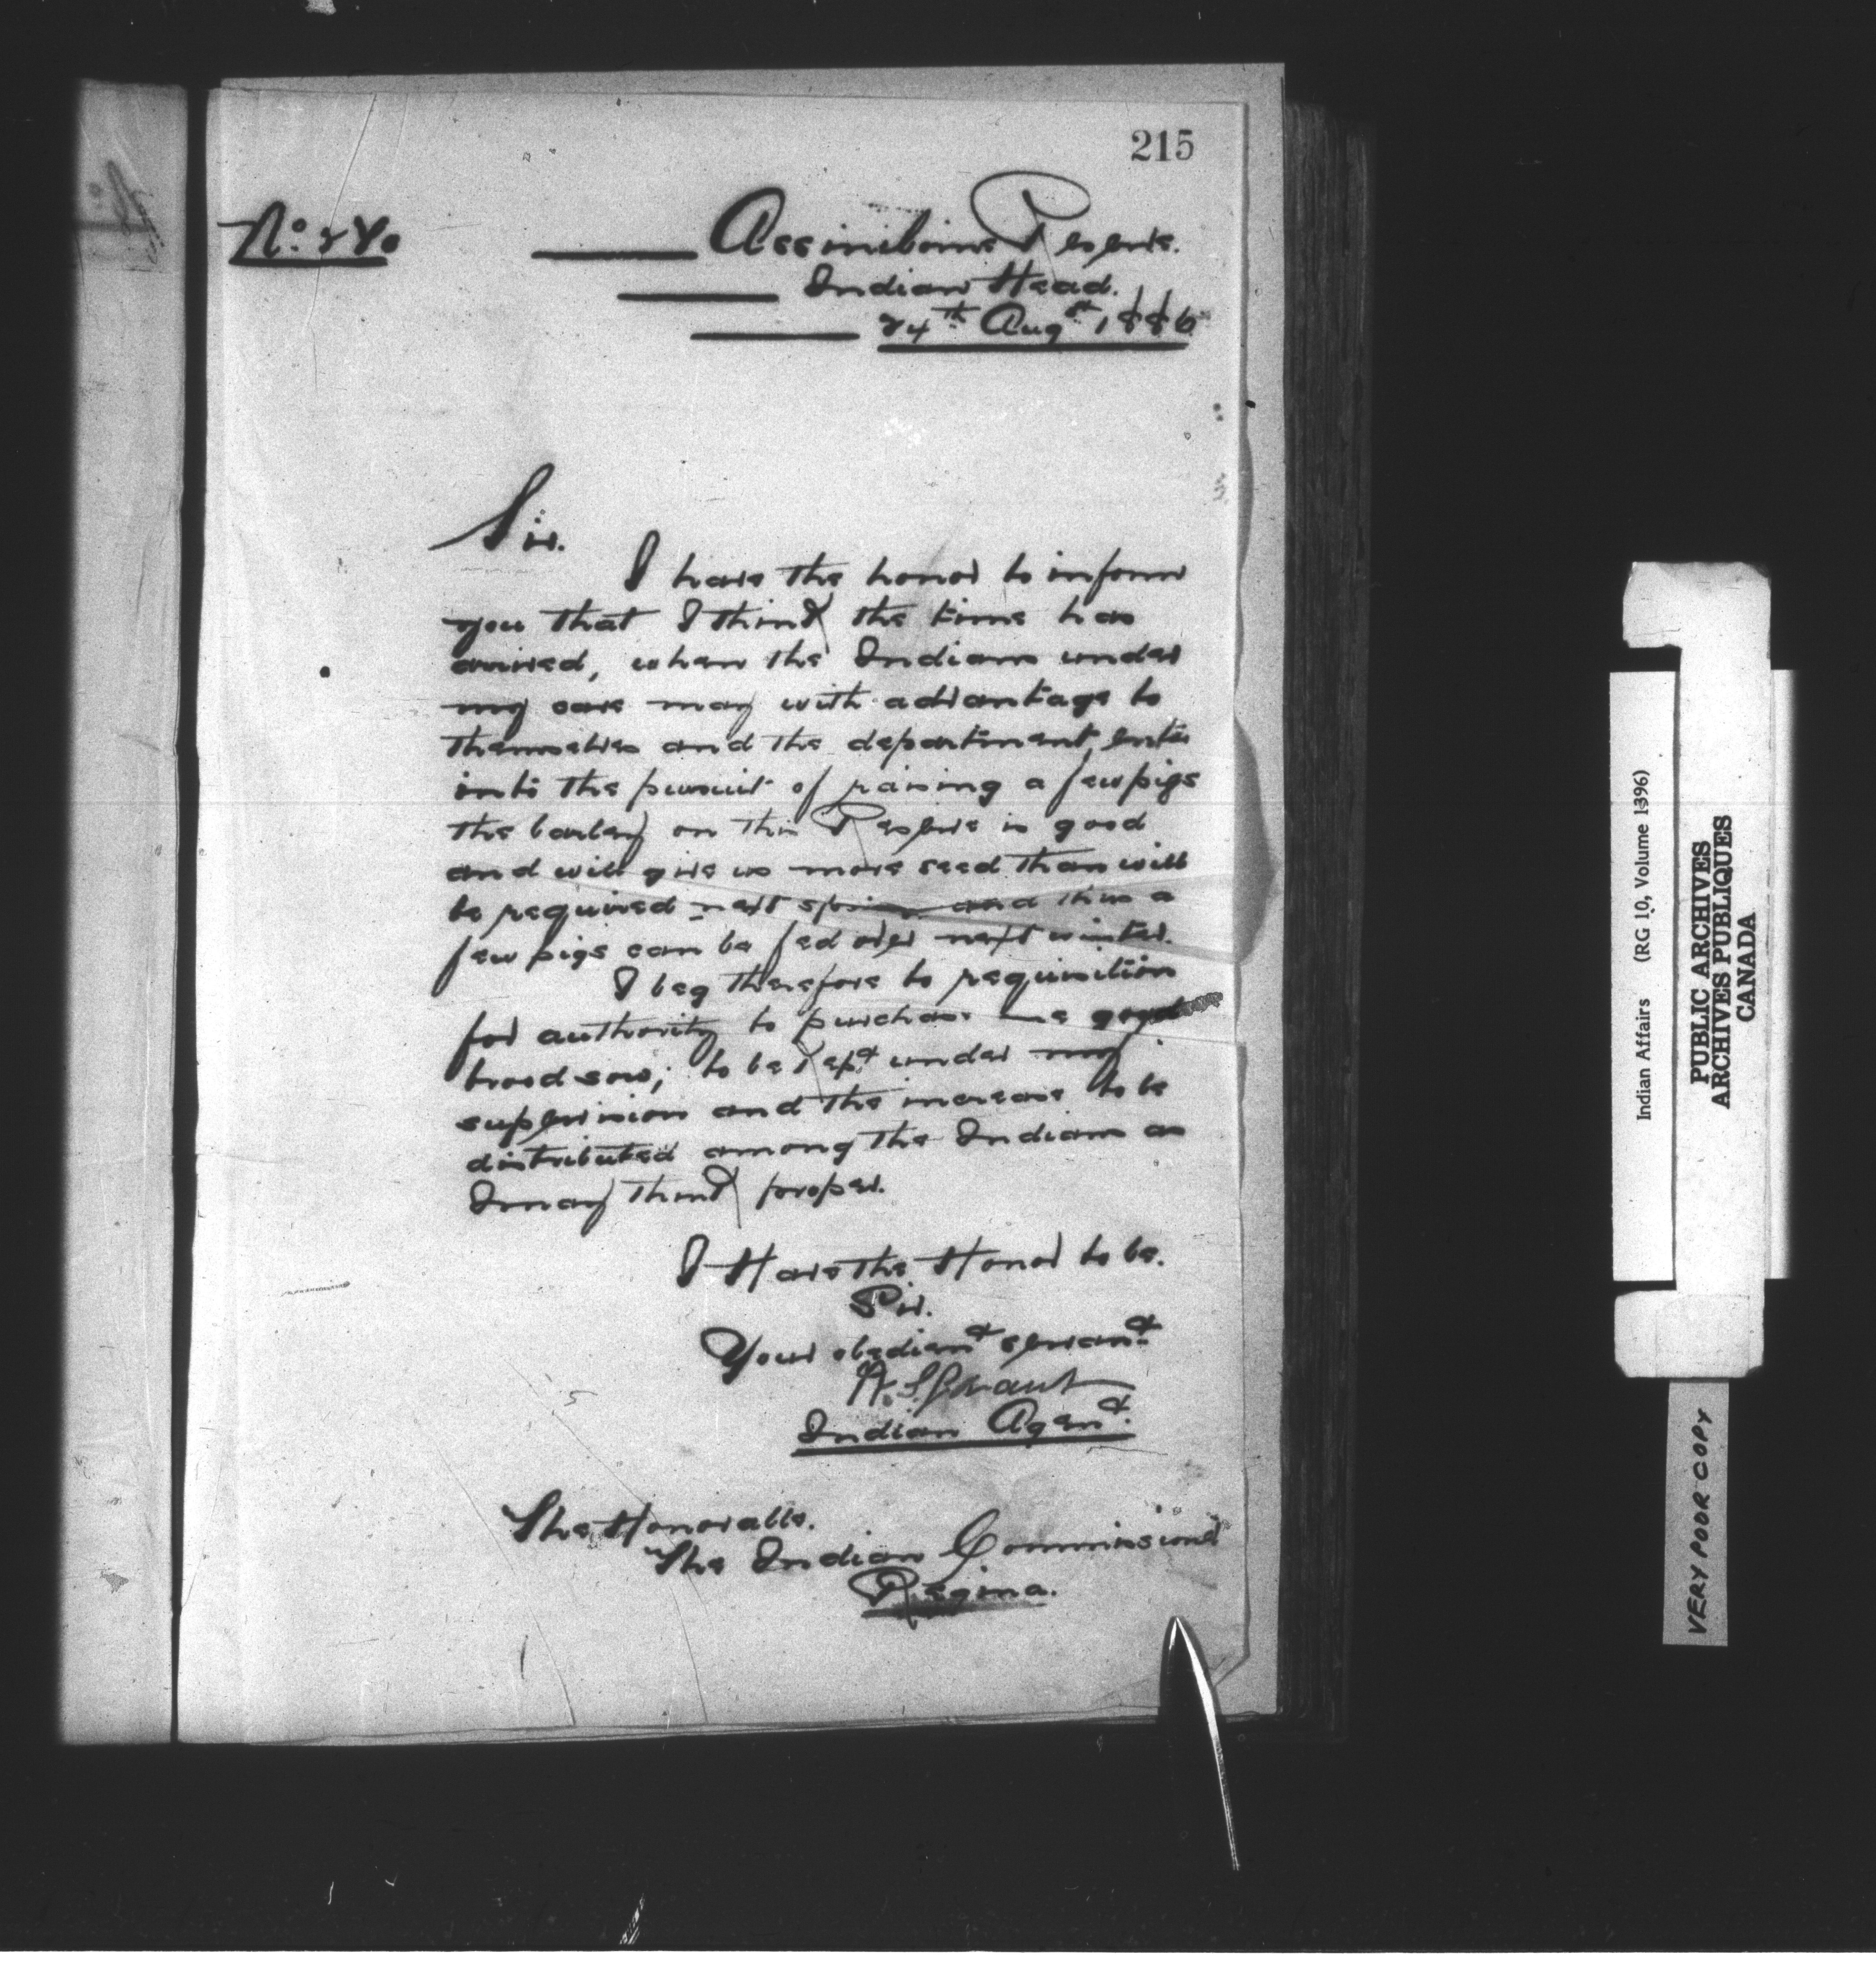 215
No. 280
Assiniboine Reserve.
Indian Head.
24th Augst 1886
Sir.
I have the honor to inform
you that I think the time has
arrived, when the Indians under
my care may with advantage to
themselves and the department enter
into the pursuit of raising a few pigs
the barley on this Reserve is good
and will give us more seed than will
be required next spring and thus a
few pigs can be fed over next winter.
I beg therefore to requisition
for authority to purchase one good
brood sow; to be kept under my
supervision and the increase to be
distributed among the Indians as
I may think proper.
I Have the Honor to be.
Sir.
Your obedient servant
W. S. Grant
Indian Agent.
The Honorable.
The Indian Commissioner
Regina.
Indian Affairs (RG 10, Volume 1396)
PUBLIC ARCHIVES
ARCHIVES PUBLIQUES
CANADA
VERY POOR COPY